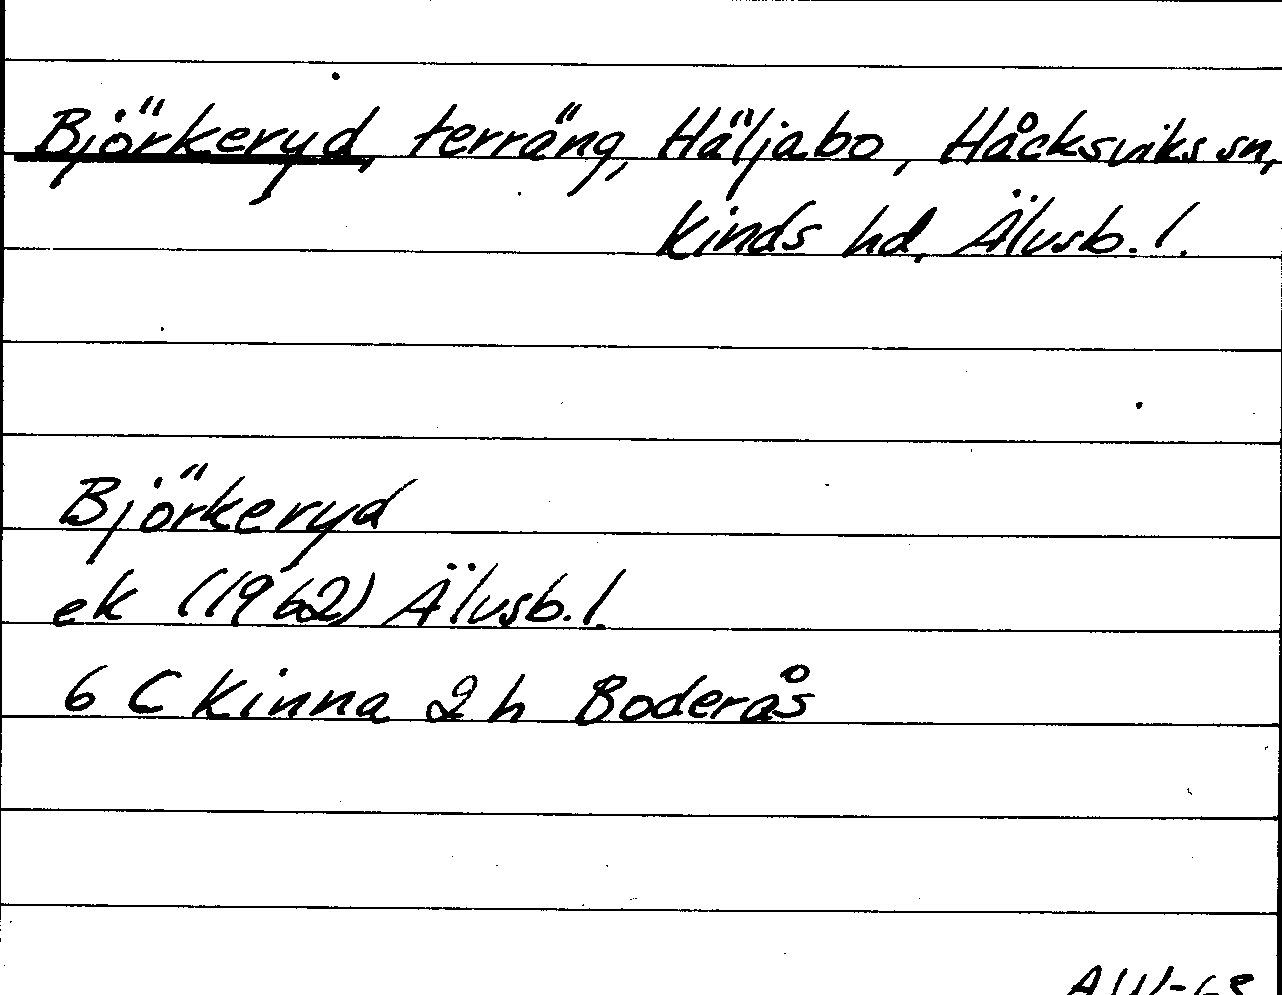 Björkeryd, terräng, Häljabo, Håcksviks sn,
Kinds hd, Älvsb. l.
Björkeryd
ek (1962) Älvsb. l.
6 C Kinna 2 h Boderås